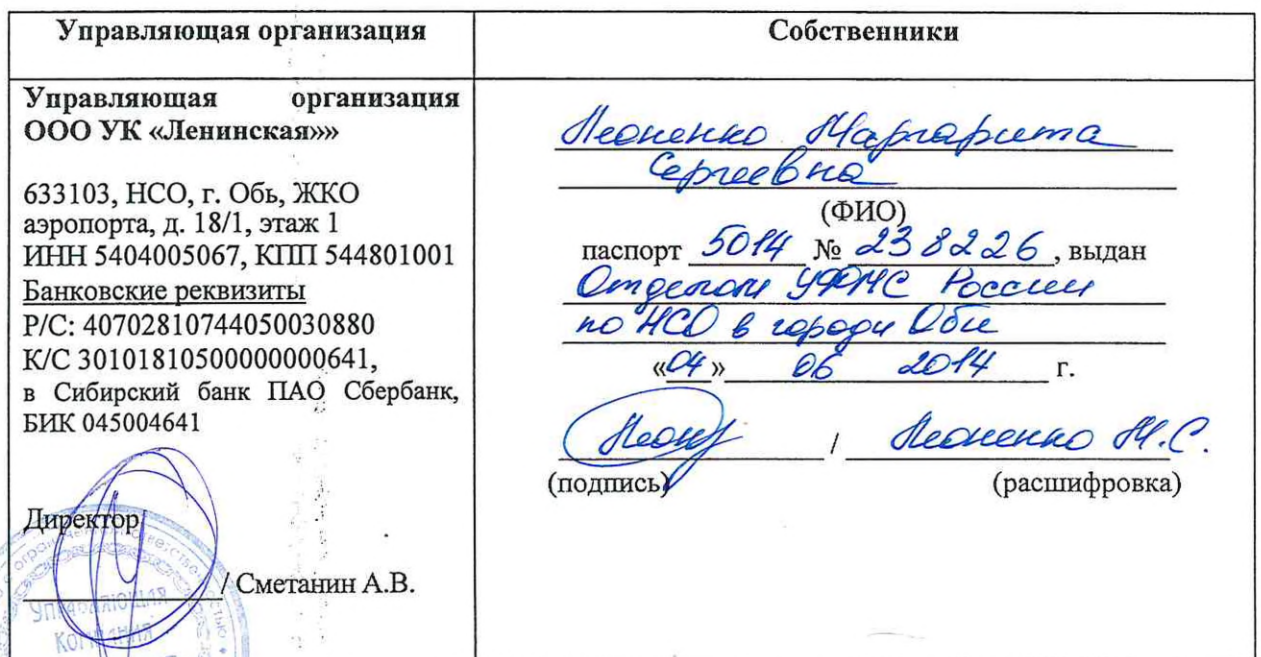 Управляющая организация
Собственники
Управляющая организация
ООО УК «Ленинская»»
633103, НСО, г. Обь, ЖКО
аэропорта, д. 18/1, этаж 1
ИНН 5404005067, КПП 544801001
Банковские реквизиты
Р/С: 40702810744050030880
К/С 30101810500000000641,
в Сибирский банк ПАО Сбербанк,
БИК 045004641
Директор
/ Сметанин А.В.
Управляющая
Компания
Леоненко Маргарита
Сергеевна
(ФИО)
паспорт 5014 № 238226, выдан
Отделом УФМС России
по НСО в городе Оби
«04» 06 2014 г.
/ Леоненко М.С.
(подпись) (расшифровка)